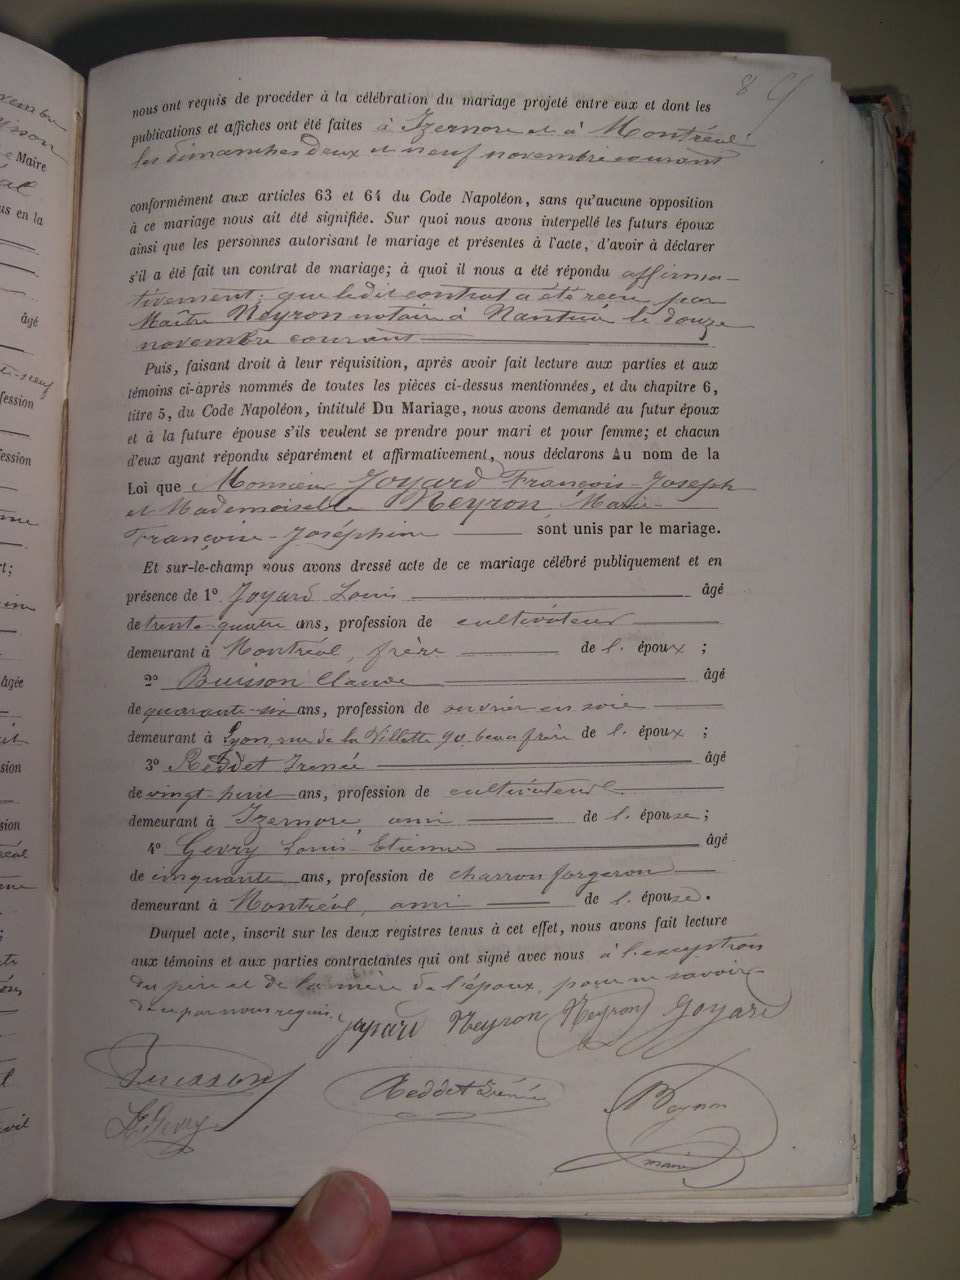 8
nous ont requis de procéder à la célébration du mariage projeté entre eux et dont les
publications et affiches ont été faites à Izernore et à Montréal
les dimanches deux et neuf novembre courant
conformément aux articles 63 et 64 du Code Napoléon, sans qu'aucune opposition
à ce mariage nous ait été signifiée. Sur quoi nous avons interpellé les futurs époux
ainsi que les personnes autorisant le mariage et présentes à l'acte, d'avoir à déclarer
s'il a été fait un contrat de mariage; à quoi il nous a été répondu affirma-
tivement; que ledit contrat a été reçu par
Maître Neyron notaire à Nantua le douze
novembre courant
Puis, faisant droit à leur réquisition, après avoir fait lecture aux parties et aux
témoins ci-après nommés de toutes les pièces ci-dessus mentionnées, et du chapitre 6,
titre 5, du Code Napoléon, intitulé Du Mariage, nous avons demandé au futur époux
et à la future épouse s'ils veulent se prendre pour mari et pour femme; et chacun
d'eux ayant répondu séparément et affirmativement, nous déclarons Au nom de la
Loi que Monsieur Joyard François-Joseph
et Mademoiselle Neyron Marie-
Françoise-Joséphine sont unis par le mariage.
Et sur-le-champ nous avons dressé acte de ce mariage célébré publiquement et en
présence de 1° Joyard Louis âgé
de trente-quatre ans, profession de cultivateur
demeurant à Montréal, frère de l'époux ;
2° Buisson Claude âgé
de quarante-six ans, profession de ouvrier en soie
demeurant à Lyon, rue de la Villette 90 beau frère de l'époux ;
3° Reddet Irénée âgé
de vingt huit ans, profession de cultivateur
demeurant à Izernore, ami de l'épouse ;
4° Gevry Louis-Etienne âgé
de cinquante ans, profession de charron forgeron
demeurant à Montréal, ami de l'épouse.
Duquel acte, inscrit sur les deux registres tenus à cet effet, nous avons fait lecture
aux témoins et aux parties contractantes qui ont signé avec nous à l'exception
du père et de la mère de l'époux, pour ne savoir
de ce par nous requis.
Joyard Neyron Neyron Joyard
Buisson
Reddet Irénée
Gevry
maire